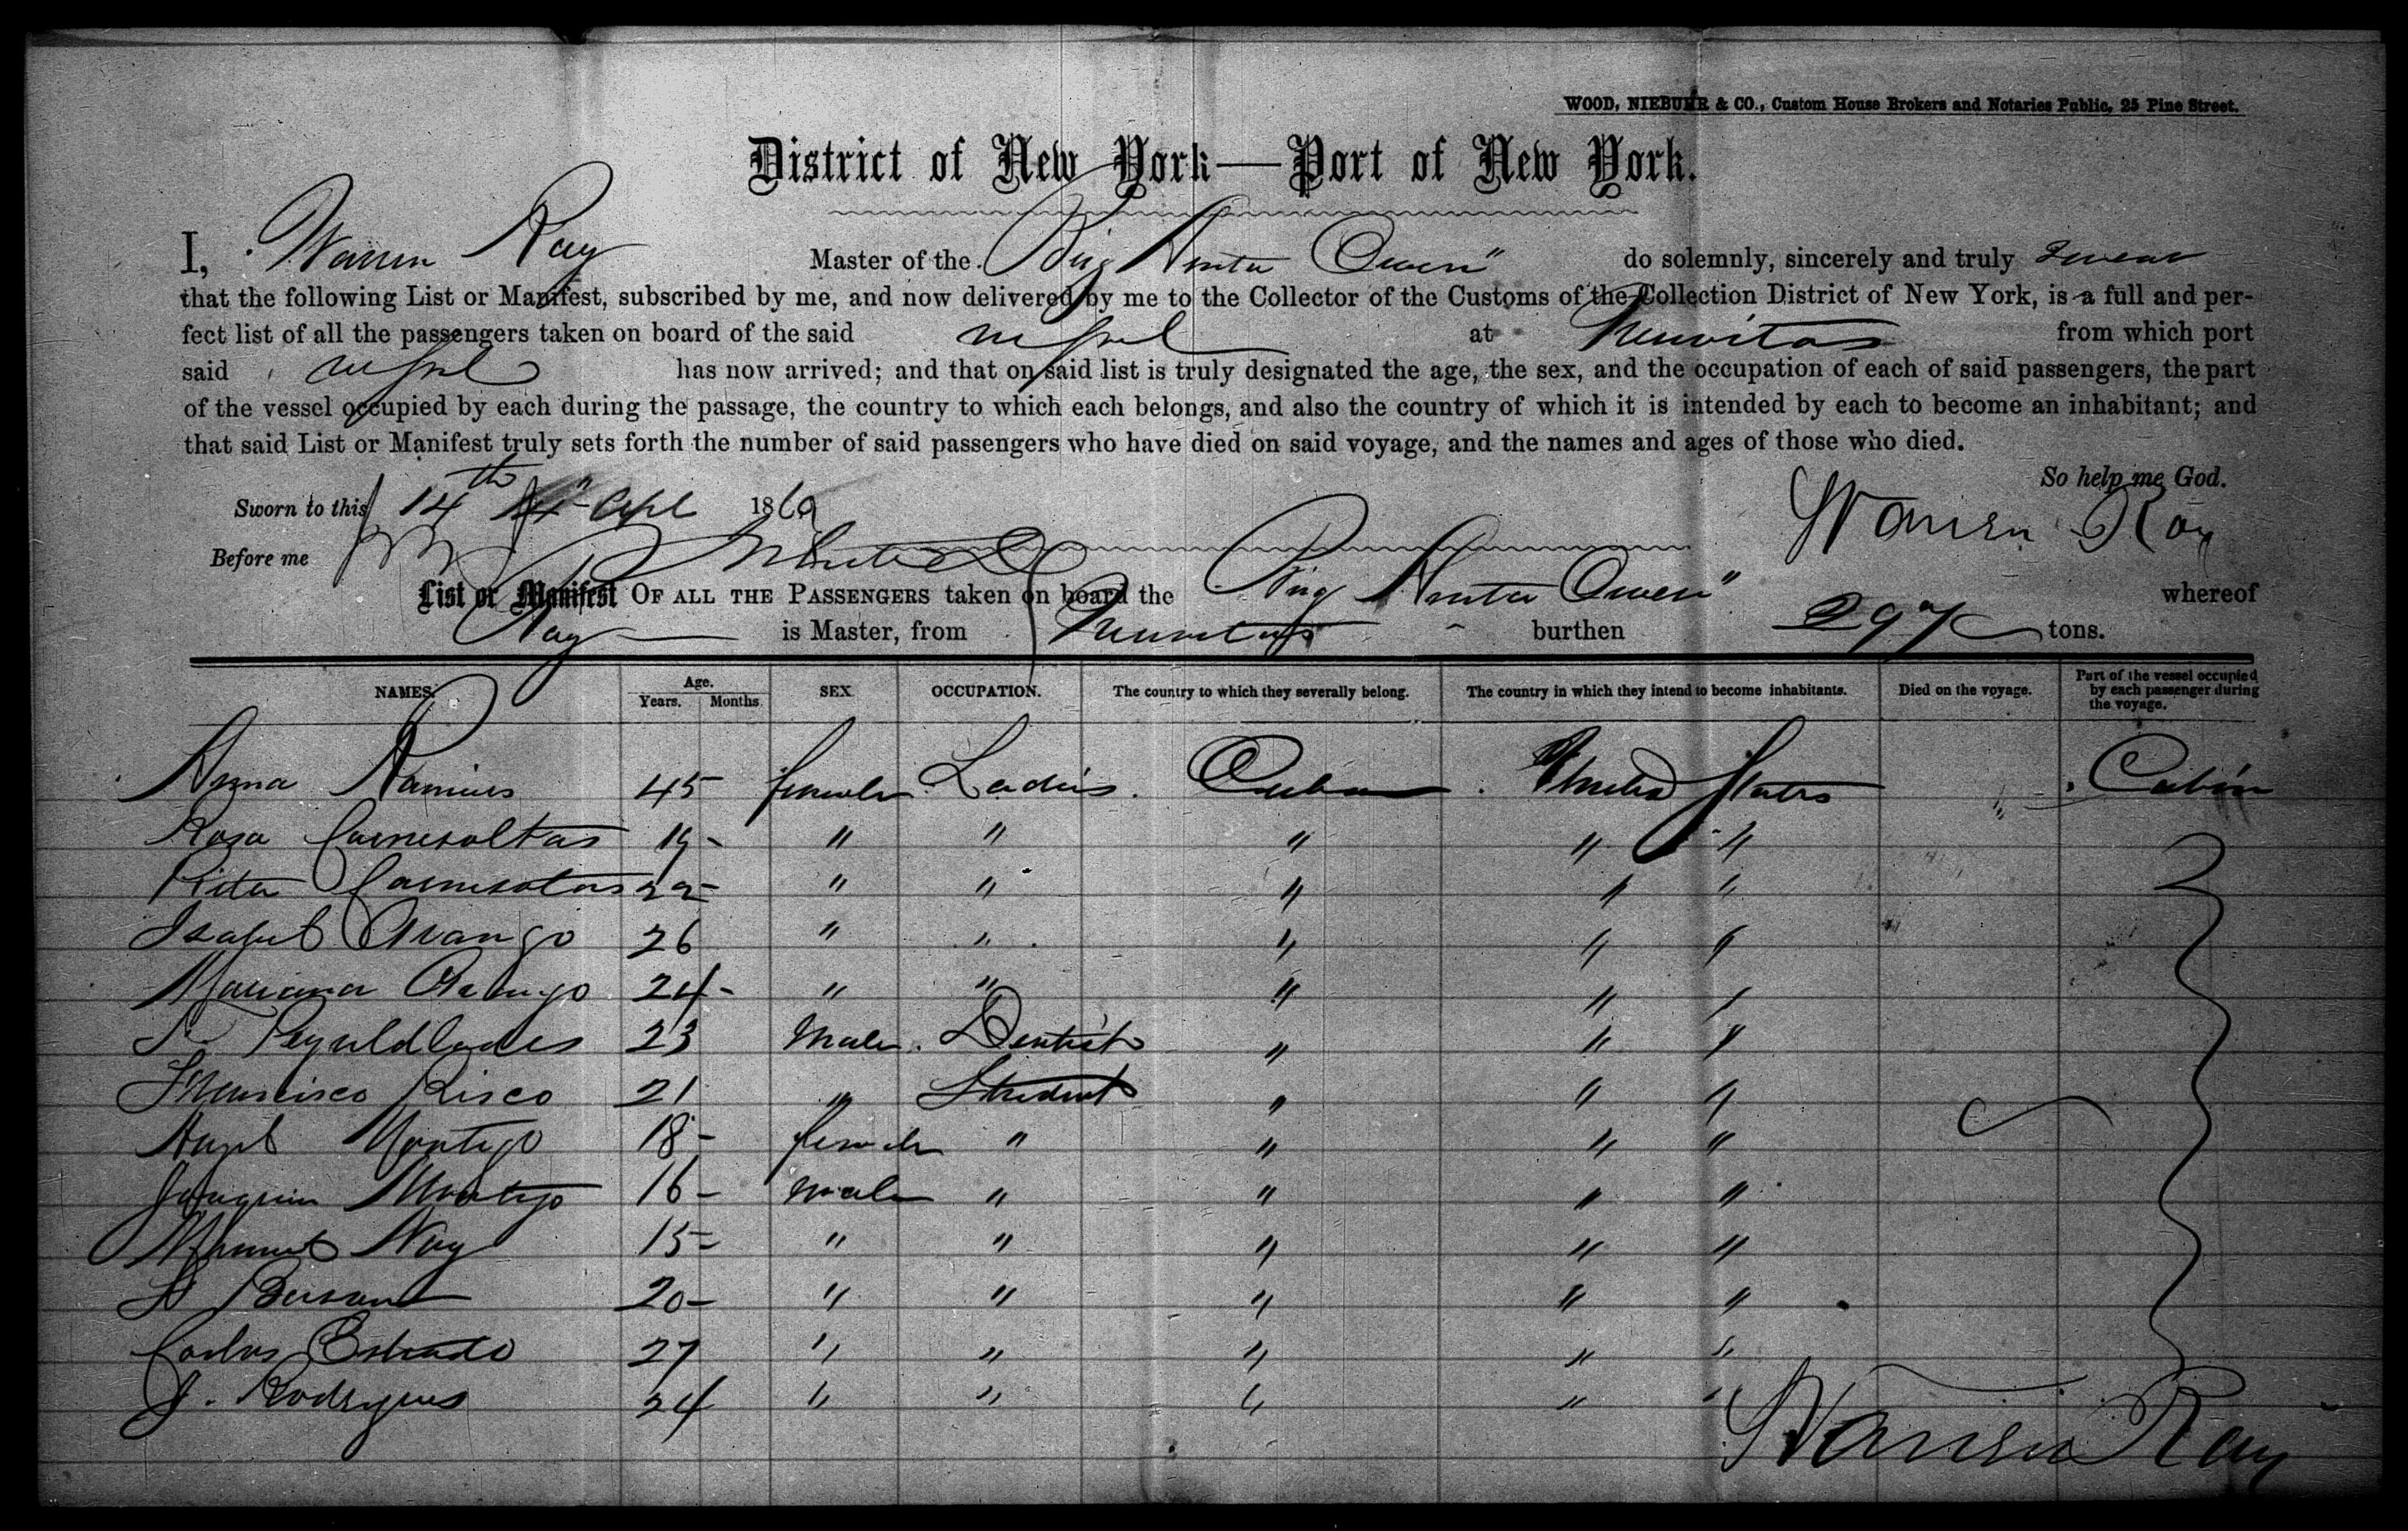 WOOD, NIEBUHR & CO., Custom House Brokers and Notaries Public, 25 Pine Street.
District of New York—Port of New York.
I, Warren Ray Master of the Brig Owen" do solemnly, sincerely and truly swear
that the following List or Manifest, subscribed by me, and now delivered by me to the Collector of the Customs of the Collection District of New York, is a full and per-
fect list of all the passengers taken on board of the said vessel at Nuevitas from which port
said vessel has now arrived; and that on said list is truly designated the age, the sex, and the occupation of each of said passengers, the part
of the vessel occupied by each during the passage, the country to which each belongs, and also the country of which it is intended by each to become an inhabitant; and
that said List or Manifest truly sets forth the number of said passengers who have died on said voyage, and the names and ages of those who died.
So help me God.
Sworn to this 14th Apl 1869 Warren Ray
Before me
List or Manifest OF ALL THE PASSENGERS taken on board the Brig Owen" whereof
Ray is Master, from Nuevitas burthen 297 tons.
NAMES. Age. Years. Months. SEX. OCCUPATION. The country to which they severally belong. The country in which they intend to become inhabitants. Died on the voyage. Part of the vessel occupied by each passenger during the voyage.
Anna 45 female Ladies Cuba United States " Cabin
Rosa 19 " " " " "
22 " " " " "
Isabel Arango 26 " " " " "
Mariana Arango 24 " " " " "
23 Male Dentist " " "
Francisco Risco 21 " Student " " "
Angel Montejo 18 female " " " "
Joaquin Montejo 16 male " " " "
Manuel Noy 15 " " " " "
20 " " " " "
Carlos Estrado 27 " " " " "
J. Rodrigues 24 " " " " "
Warren Ray